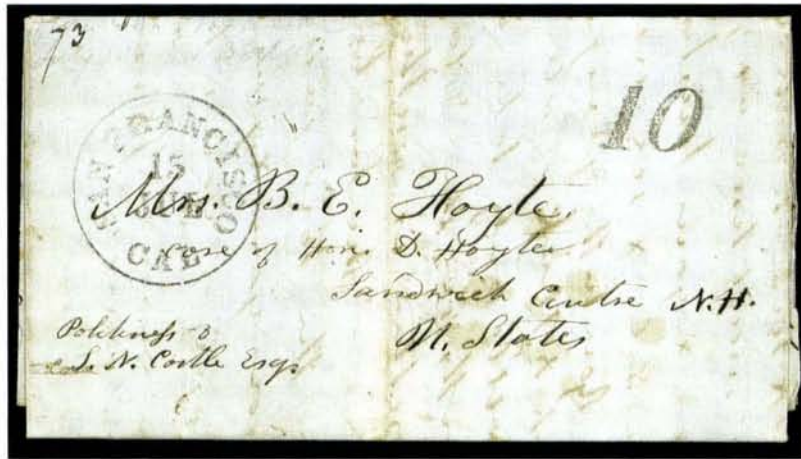 73
10
SAN FRANCISCO
15
CAL
Mrs. B. E. Hoyte.
Care of Hon. D. Hoyte
Sandwich Centre N.H.
U. States
Politeness of
S. N. Castle Esqr